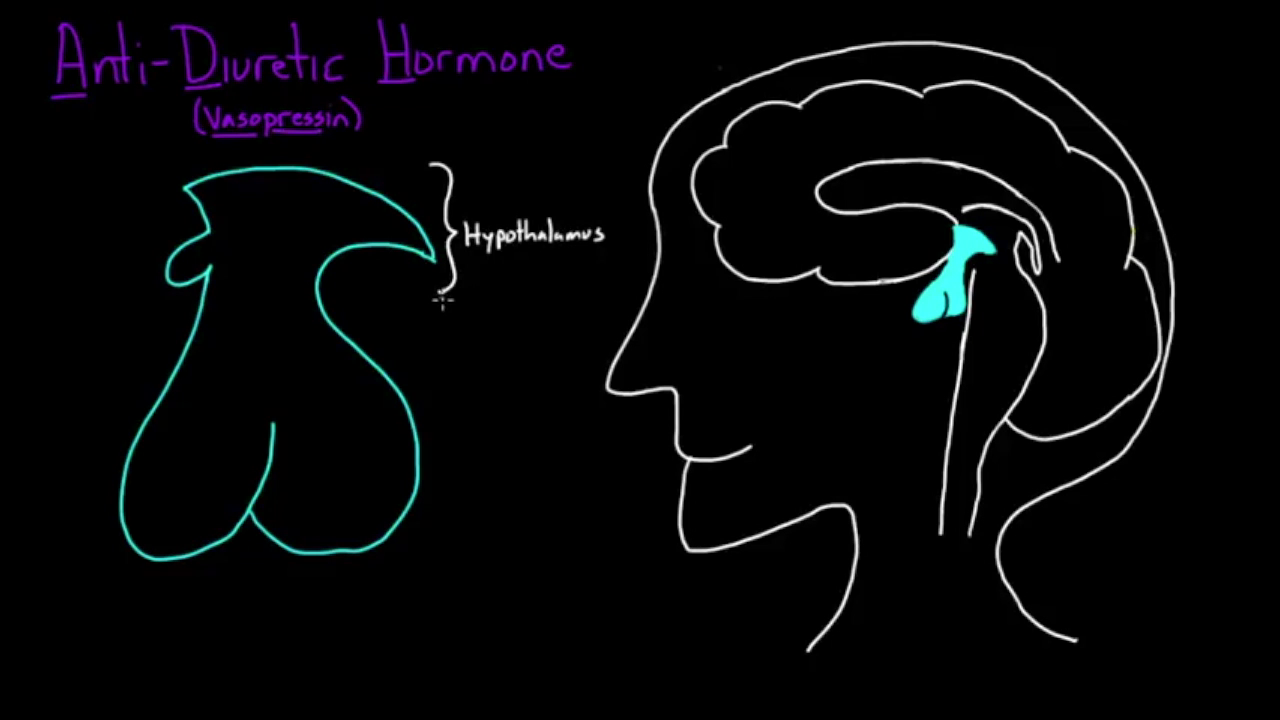 Anti-Diuretic Hormone
(Vasopressin)
Hypothalamus